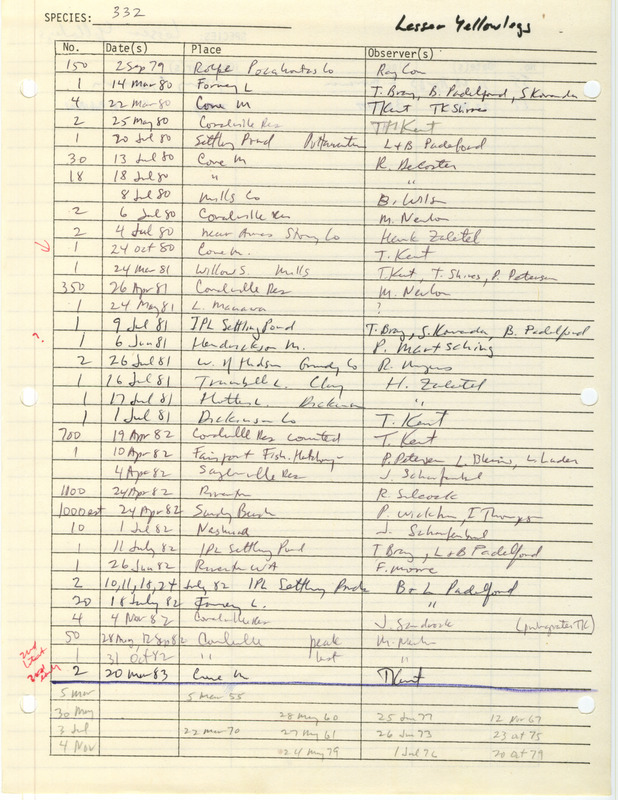 SPECIES: 332 Lesser Yellowlegs
No. Date(s) Place Observer(s)
150 2 Sep 79 Rolfe Pocahontas Co Ray Cou
1 14 Mar 80 Forney L T. Bray, B. Padelford, S Kovanda
4 22 Mar 80 Cone M TKent TK Shires
2 25 May 80 Coralville Res THKent
1 20 Jul 80 Settling Pond Pottawattamie L+B Padelford
30 13 Jul 80 Cone M R. DeCoster
18 18 Jul 80 " "
8 Jul 80 Mills Co B. Wilson
2 6 Jul 80 Coralville Res M. Newlon
2 4 Jul 80 near Ames Story Co Hank Zaletel
1 24 Oct 80 Cone M. T. Kent
1 24 Mar 81 Willow S. Mills TKent, T. Shires, P. Petersen
350 26 Apr 81 Coralville Res M. Newlon
1 24 May 81 L. Manawa ?
1 9 Jul 81 IPL Settling Pond T. Bray, S. Kovanda, B. Padelford
? 1 6 Jun 81 Hendrickson M. P. Martsching
2 26 Jul 81 W. of Hudson Grundy Co R. Myers
1 16 Jul 81 Trumbull L. Clay H. Zaletel
1 17 Jul 81 Hottes L. Dickinson "
1 1 Jul 81 Dickinson Co T. Kent
700 19 Apr 82 Coralville Res counted T. Kent
1 10 Apr 82 Fairport Fish. Hatchery P. Petersen L. Blevins,
4 Apr 82 Saylorville Res J.
1100 24 Apr 82 Riverton R. Silcock
1000 est 24 Apr 82 Sandy Beach P. Wickham, I Thompson
10 1 Jul 82 Neshua J.
1 11 July 82 IPL Settling Pond T Bray, L+B Padelford
1 26 Jun 82 Riverton WA F. Moore
2 10,11,18,24 July 82 IPL Settling Ponds B+L Padelford
20 18 July 82 Forney L. "
4 4 Nov 82 Coralville Res J. Sandrock
50 28 Aug, 12 Sep 82 Coralville peak M. Newlon
2nd latest 1 31 Oct 82 " last "
3rd early 2 20 Mar 83 Cone M TKent
5 Mar 5 Mar 55
30 May 28 May 60 25 Jun 77 12 Nov 67
3 Jul 22 Mar 70 27 May 61 26 Jun 73 23 Oct 75
4 Nov 24 May 79 1 Jul 76 20 Oct 79